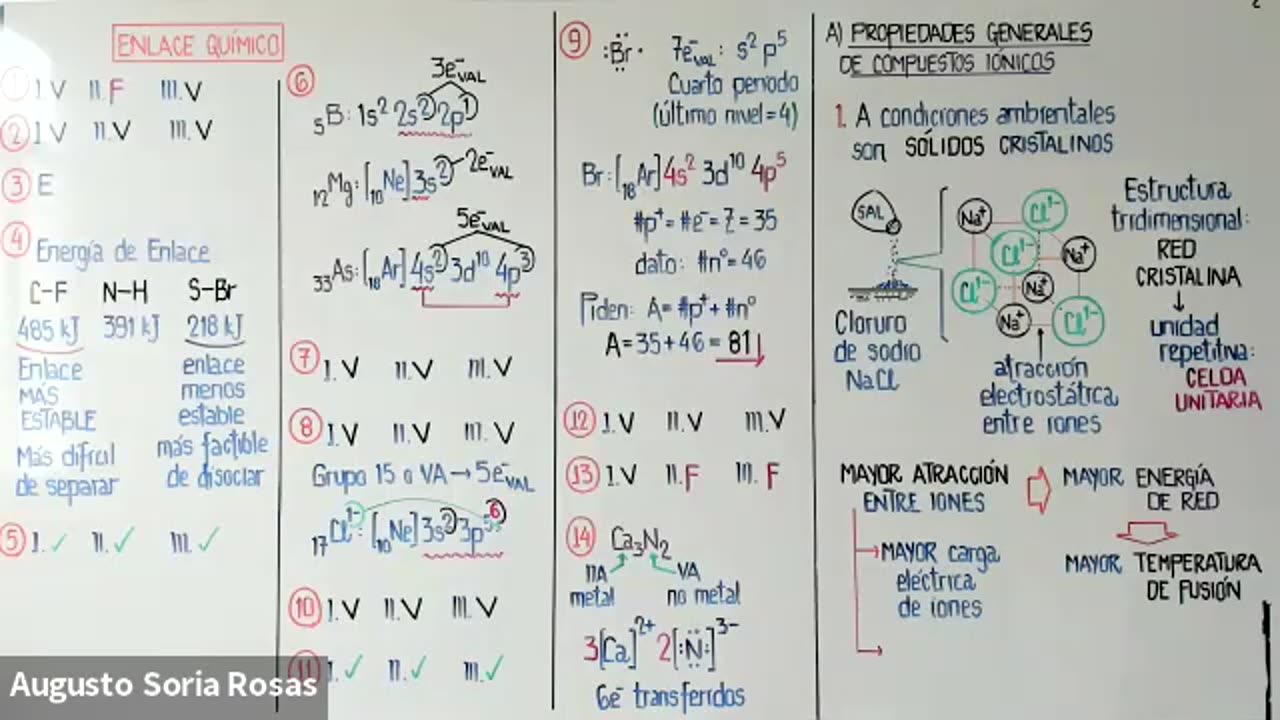 ENLACE QUÍMICO
① I.V II.F III.V
② I.V II.V III.V
③ E
④ Energía de Enlace
C-F N-H S-Br
485 kJ 391 kJ 218 kJ
Enlace
MÁS
ESTABLE
Más difícil
de separar
enlace
menos
estable
más factible
de disociar
⑤ I.✓ II.✓ III.✓
⑥ 3e⁻VAL
₅B: 1s² 2s² 2p¹
₁₂Mg: [₁₀Ne] 3s² 2e⁻VAL
5e⁻VAL
₃₃As: [₁₈Ar] 4s² 3d¹⁰ 4p³
⑦ I.V II.V III.V
⑧ I.V II.V III.V
Grupo 15 o VA → 5e⁻VAL
₁₇Cl¹⁻: [₁₀Ne] 3s² 3p⁶
⑩ I.V II.V III.V
⑪ I.✓ II.✓ III.✓
⑨ :Br· 7e⁻VAL: s² p⁵
Cuarto periodo
(último nivel=4)
Br: [₁₈Ar] 4s² 3d¹⁰ 4p⁵
#p⁺ = #e⁻ = Z = 35
dato: #n° = 46
Piden: A = #p⁺ + #n°
A = 35 + 46 = 81
⑫ I.V II.V III.V
⑬ I.V II.F III.F
⑭ Ca₃N₂
IIA VA
metal no metal
3[Ca]²⁺ 2[:N:]³⁻
6e⁻ transferidos
A) PROPIEDADES GENERALES
DE COMPUESTOS IÓNICOS
1. A condiciones ambientales
son SÓLIDOS CRISTALINOS
SAL
Cloruro
de sodio
NaCl
Na⁺ Cl¹⁻
Cl¹⁻ Na⁺
Cl¹⁻ Na⁺
Na⁺ Cl¹⁻
atracción
electrostática
entre iones
Estructura
tridimensional:
RED
CRISTALINA
↓
unidad
repetitiva:
CELDA
UNITARIA
MAYOR ATRACCIÓN
ENTRE IONES
⇨ MAYOR ENERGÍA
DE RED
MAYOR TEMPERATURA
DE FUSIÓN
→ MAYOR carga
eléctrica
de iones
Augusto Soria Rosas